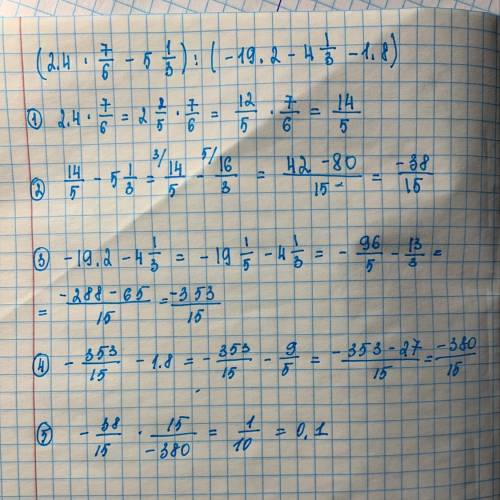 (2.4 · 7/6 - 5 1/3) : (-19.2 - 4 1/3 - 1.8)
① 2.4 · 7/6 = 2 2/5 · 7/6 = 12/5 · 7/6 = 14/5
② 14/5 - 5 1/3 = 3/ 14/5 - 5/ 16/3 = 42-80/15 = -38/15
③ -19.2 - 4 1/3 = -19 1/5 - 4 1/3 = - 96/5 - 13/3 =
= -288-65/15 = -353/15
④ - 353/15 - 1.8 = - 353/15 - 9/5 = -353-27/15 = -380/15
⑤ - 38/15 · 15/-380 = 1/10 = 0,1